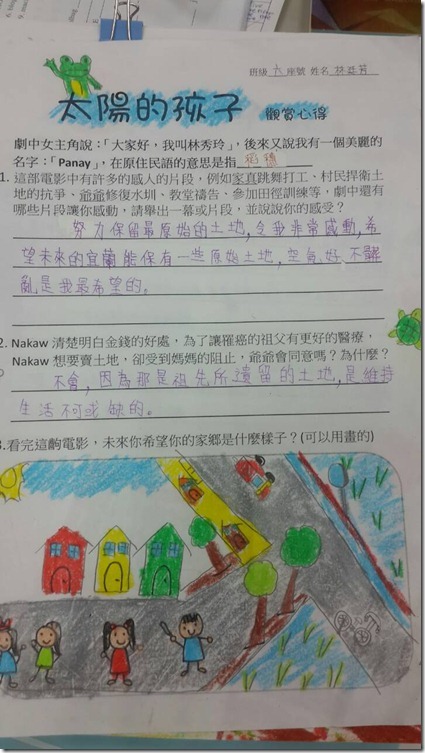 班級 六 座號 姓名 林芸芳
太陽的孩子 觀賞心得
劇中女主角說：「大家好，我叫林秀玲」，後來又說我有一個美麗的
名字：「Panay」，在原住民語的意思是指 稻穗
1. 這部電影中有許多的感人的片段，例如家真跳舞打工、村民捍衛土
地的抗爭、爺爺修復水圳、教堂禱告、參加田徑訓練等，劇中還有
哪些片段讓你感動，請舉出一幕或片段，並說說你的感受？
努力保留最原始的土地，令我非常感動，希
望未來的宜蘭能保有一些原始土地，空氣好、不髒
亂是我最希望的。
2. Nakaw 清楚明白金錢的好處，為了讓罹癌的祖父有更好的醫療，
Nakaw 想要賣土地，卻受到媽媽的阻止，爺爺會同意嗎？為什麼？
不會，因為那是祖先所遺留的土地，是維持
生活不可或缺的。
3.看完這齣電影，未來你希望你的家鄉是什麼樣子？(可以用畫的)